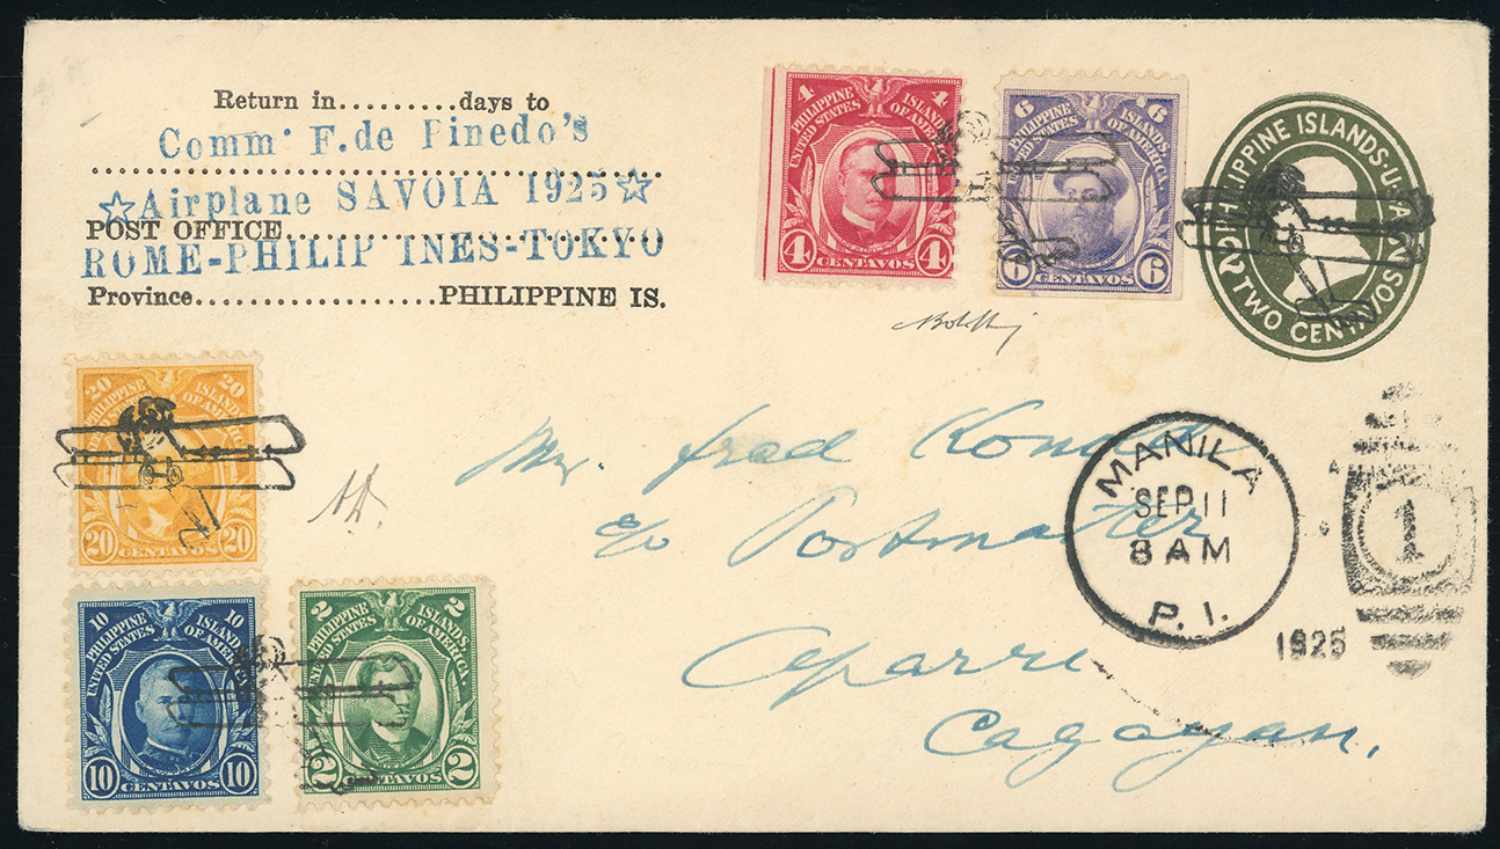 Return in..........days to
Comm. F. de Pinedo's
☆Airplane SAVOIA 1925☆
POST OFFICE
ROME-PHILIP INES-TOKYO
Province..................PHILIPPINE IS.
4 4
PHILIPPINE ISLANDS
UNITED STATES OF AMERICA
4 CENTAVOS 4
6 6
PHILIPPINE ISLANDS,
UNITED STATES OF AMERICA.
6 CENTAVOS 6
PHILIPPINE ISLANDS·U.S.A.
2 TWO CENTAVOS 2
20 20
PHILIPPINE ISLANDS
OF AMERICA
20 CENTAVOS 20
Mr. Fred
c/o Postmaster
Aparri
Cagayan.
MANILA
SEP 11
8 AM
P. I.
1925
1
10 10
PHILIPPINE ISLANDS
UNITED STATES OF AMERICA
10 CENTAVOS 10
2 2
PHILIPPINE ISLANDS,
UNITED STATES OF AMERICA.
2 CENTAVOS 2